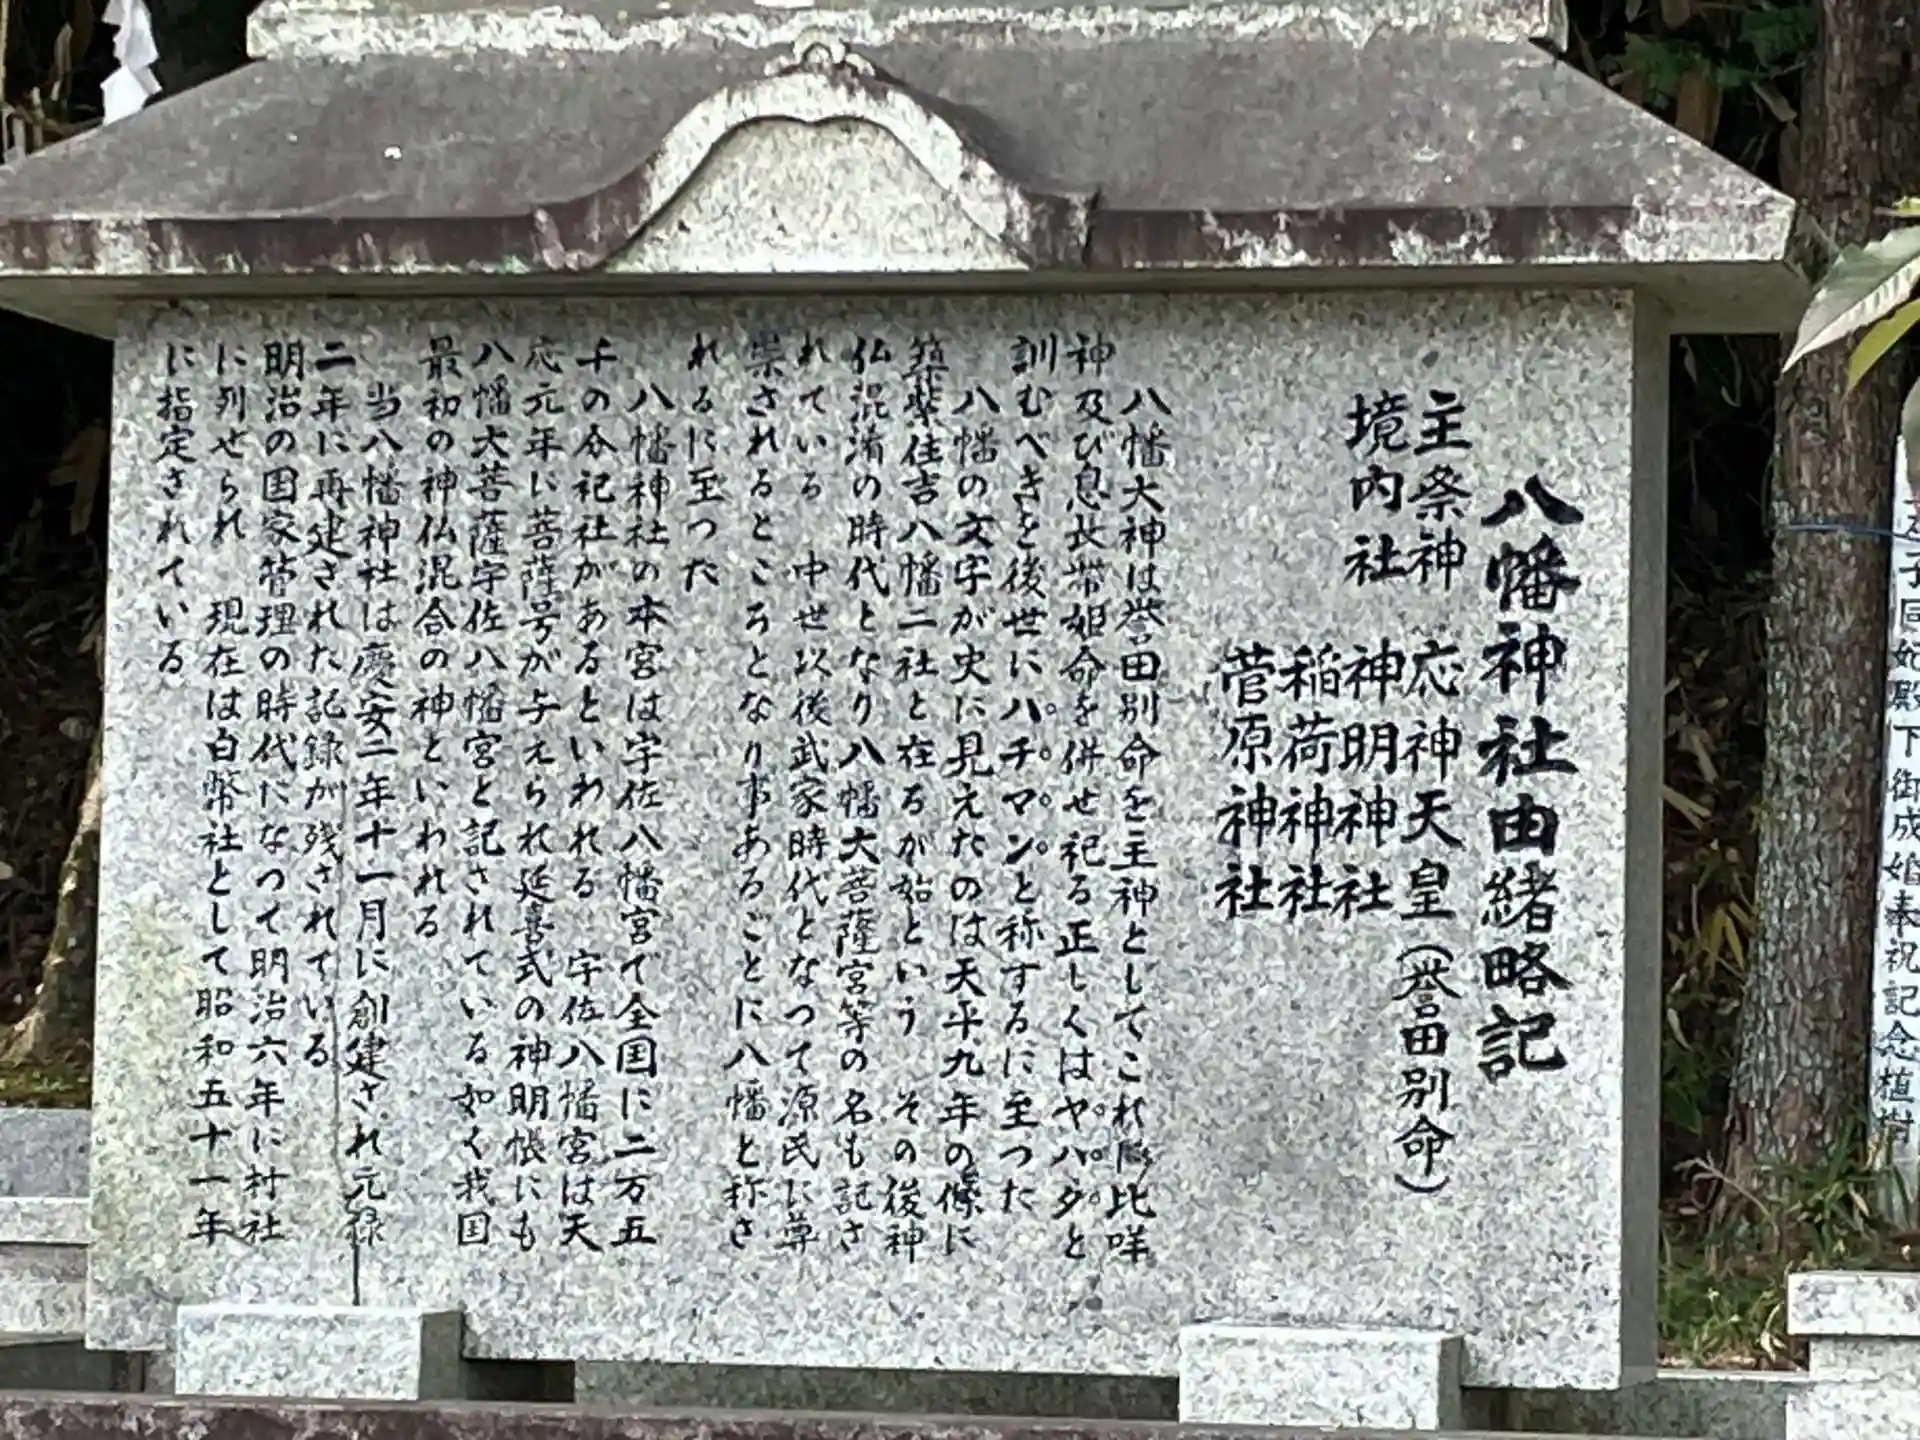 八幡神社由緒略記
主祭神　応神天皇（誉田別命）
境内社　神明神社
稲荷神社
菅原神社
八幡大神は誉田別命を主神としてこれに比咩
神及び息長帯姐命を併せ祀る正しくはヤハタと
訓むべきを後世にハチマンと称するに至つた
八幡の文字が史に見えたのは天平九年の條に
築紫住吉八幡二社と在るが始という　その後神
仏混淆の時代となり八幡大菩薩宮等の名も記さ
れている　中世以後武家時代となつて源民に尊
崇されるところとなり事あるごとに八幡と称さ
れるに至つた
八幡神社の本宮は宇佐八幡宮で全国に二万五
千の分祀社があるといわれる　宇佐八幡宮は天
応元年に菩薩号が与えられ延喜式の神明帳にも
八幡大菩薩宇佐八幡宮と記されている如く我国
最初の神仏混合の神といわれる
当八幡神社は慶安二年十一月に創建され元禄
二年に再建された記録が残されている
明治の国家管理の時代になつて明治六年に村社
に列せられ　現在は白幣社として昭和五十一年
に指定されている
子同妃殿下御成婚奉祝記念植樹